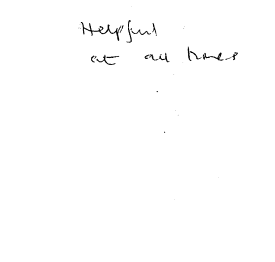 Helpful
at all times